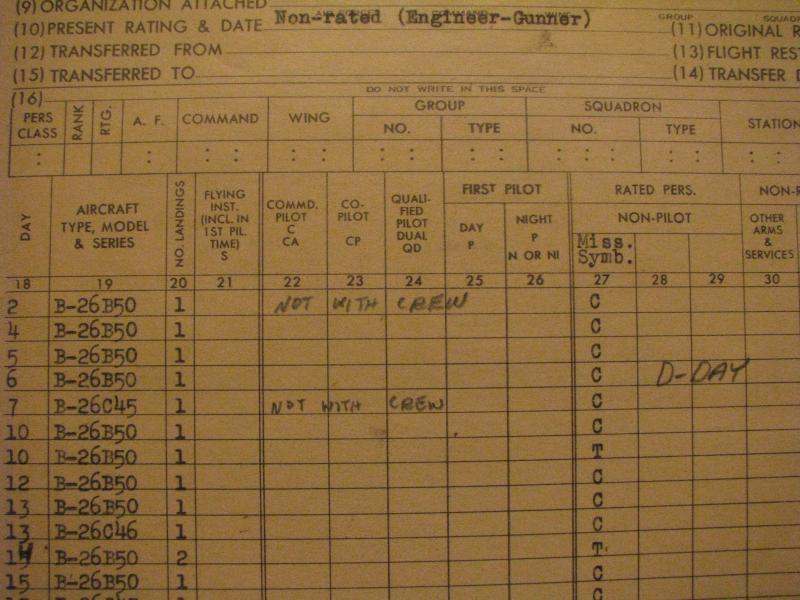 (9) ORGANIZATION ATTACHED
(10) PRESENT RATING & DATE Non-rated (Engineer-Gunner) GROUP SQUAD
(11) ORIGINAL R
(12) TRANSFERRED FROM (13) FLIGHT RES
(15) TRANSFERRED TO (14) TRANSFER D
DO NOT WRITE IN THIS SPACE
(16)
PERS CLASS RANK RTG. A. F. COMMAND WING GROUP NO. TYPE SQUADRON NO. TYPE STATION
DAY AIRCRAFT TYPE, MODEL & SERIES NO. LANDINGS FLYING INST. (INCL. IN 1ST PIL. TIME) S COMMD. PILOT C CA CO-PILOT CP QUALI-FIED PILOT DUAL QD FIRST PILOT DAY P NIGHT P N OR NI RATED PERS. NON-PILOT Miss. Symb. NON-R OTHER ARMS & SERVICES
18 19 20 21 22 23 24 25 26 27 28 29 30
2 B-26B50 1 NOT WITH CREW C
4 B-26B50 1 C
5 B-26B50 1 C
6 B-26B50 1 C D-DAY
7 B-26C45 1 NOT WITH CREW C
10 B-26B50 1 C
10 B-26B50 1 T
12 B-26B50 1 C
13 B-26B50 1 C
13 B-26C46 1 C
14 B-26B50 2 T
15 B-26B50 1 C